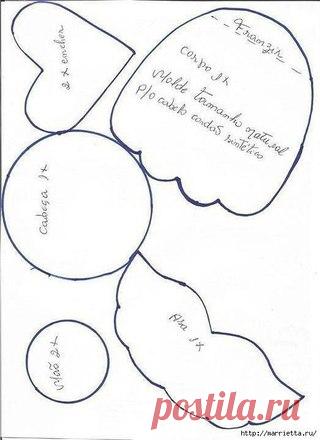 Franzir
corpo 1x
Molde tamanho natural
P/o cabelo cordas sintético
2x encher
Cabeça 1x
Mão 2x
Asa 1x
postila.ru
http://marrietta.ru/